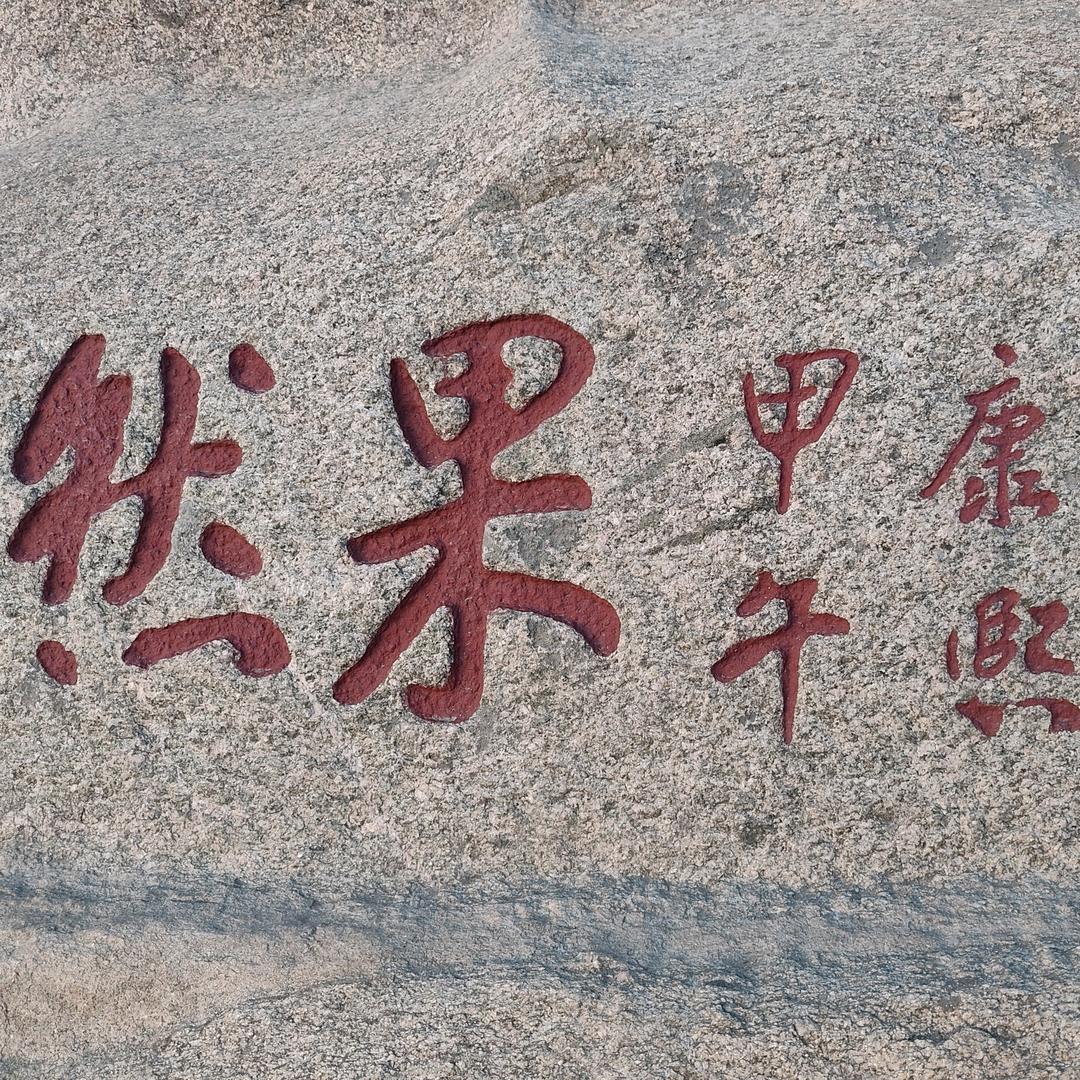 康熙
甲午
果然